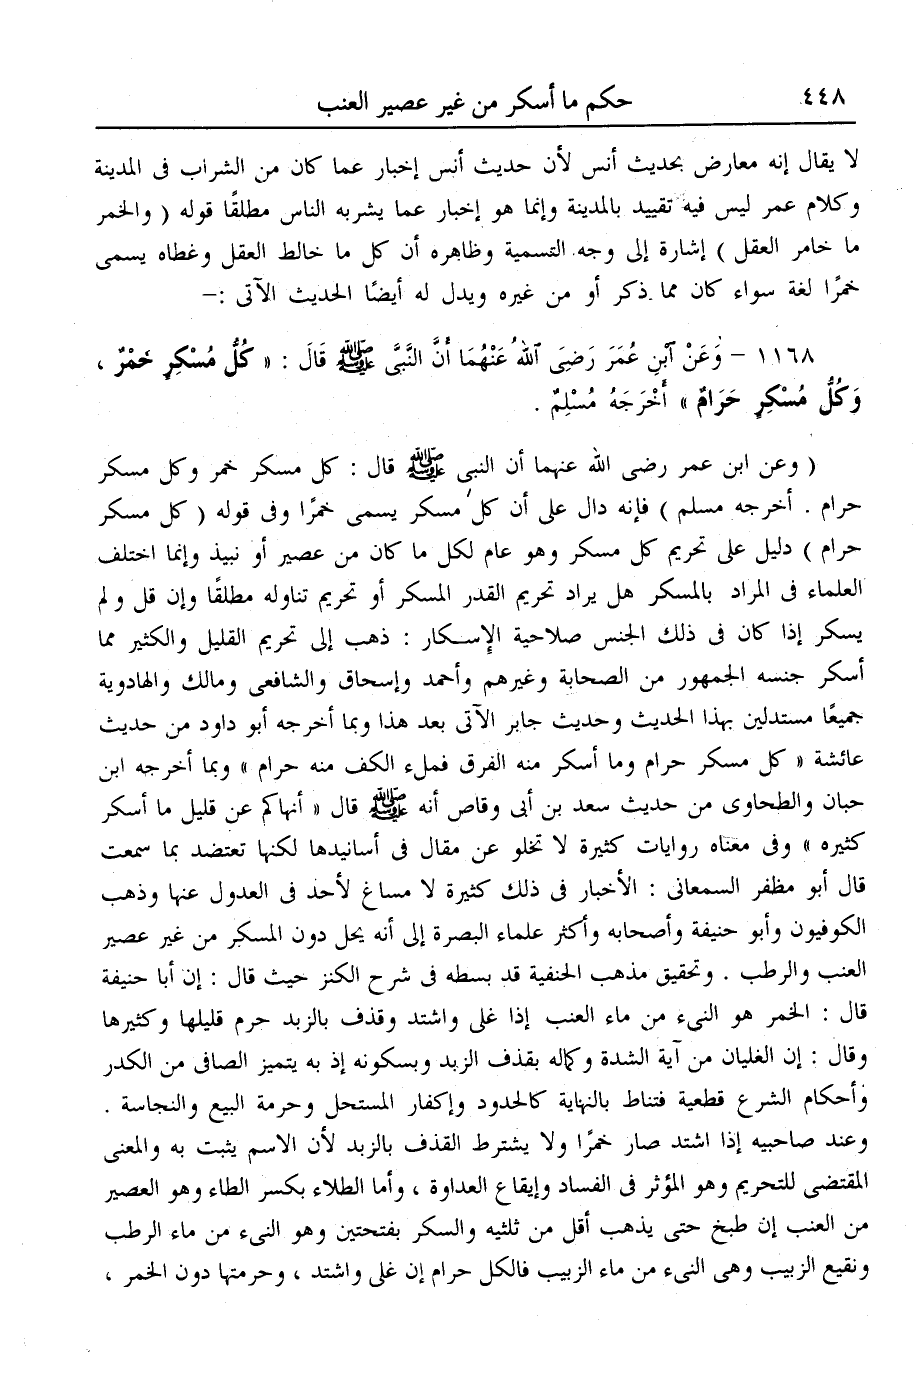 ٤٤٨ حكم ما أسكر من غير عصير العنب
لا يقال إنه معارض بحديث أنس لأن حديث أنس إخبار عما كان من الشراب فى المدينة
وكلام عمر ليس فيه تقييد بالمدينة وإنما هو إخبار عما يشربه الناس مطلقًا قوله ( والخمر
ما خامر العقل ) إشارة إلى وجه التسمية وظاهره أن كل ما خالط العقل وغطاه يسمى
خمرًا لغة سواء كان مما ذكر أو من غيره ويدل له أيضًا الحديث الآتى :–
١١٦٨ – وَعَنْ ٱبْنِ عُمَرَ رَضِىَ ٱللهُ عَنْهُمَا أَنَّ النَّبِىَّ ﷺ قَالَ : « كُلُّ مُسْكِرٍ خَمْرٌ ،
وَكُلُّ مُسْكِرٍ حَرَامٌ » أَخْرَجَهُ مُسْلِمٌ .
( وعن ابن عمر رضى الله عنهما أن النبى ﷺ قال : كل مسكر خمر وكل مسكر
حرام . أخرجه مسلم ) فإنه دال على أن كل مسكر يسمى خمرًا وفى قوله ( كل مسكر
حرام ) دليل على تحريم كل مسكر وهو عام لكل ما كان من عصير أو نبيذ وإنما اختلف
العلماء فى المراد بالمسكر هل يراد تحريم القدر المسكر أو تحريم تناوله مطلقًا وإن قل ولم
يسكر إذا كان فى ذلك الجنس صلاحية الإسكار : ذهب إلى تحريم القليل والكثير مما
أسكر جنسه الجمهور من الصحابة وغيرهم وأحمد وإسحاق والشافعى ومالك والهادوية
جميعًا مستدلين بهذا الحديث وحديث جابر الآتى بعد هذا وبما أخرجه أبو داود من حديث
عائشة « كل مسكر حرام وما أسكر منه الفرق فملء الكف منه حرام » وبما أخرجه ابن
حبان والطحاوى من حديث سعد بن أبى وقاص أنه ﷺ قال « أنهاكم عن قليل ما أسكر
كثيره » وفى معناه روايات كثيرة لا تخلو عن مقال فى أسانيدها لكنها تعتضد بما سمعت
قال أبو مظفر السمعانى : الأخبار فى ذلك كثيرة لا مساغ لأحد فى العدول عنها وذهب
الكوفيون وأبو حنيفة وأصحابه وأكثر علماء البصرة إلى أنه يحل دون المسكر من غير عصير
العنب والرطب . وتحقيق مذهب الحنفية قد بسطه فى شرح الكنز حيث قال : إن أبا حنيفة
قال : الخمر هو النىء من ماء العنب إذا غلى واشتد وقذف بالزبد حرم قليلها وكثيرها
وقال : إن الغليان من آية الشدة وكماله بقذف الزبد وبسكونه إذ به يتميز الصافى من الكدر
وأحكام الشرع قطعية فتناط بالنهاية كالحدود وإكفار المستحل وحرمة البيع والنجاسة .
وعند صاحبيه إذا اشتد صار خمرًا ولا يشترط القذف بالزبد لأن الاسم يثبت به والمعنى
المقتضى للتحريم وهو المؤثر فى الفساد وإيقاع العداوة ، وأما الطلاء بكسر الطاء وهو العصير
من العنب إن طبخ حتى يذهب أقل من ثلثيه والسكر بفتحتين وهو النىء من ماء الرطب
ونقيع الزبيب وهى النىء من ماء الزبيب فالكل حرام إن غلى واشتد ، وحرمتها دون الخمر ،